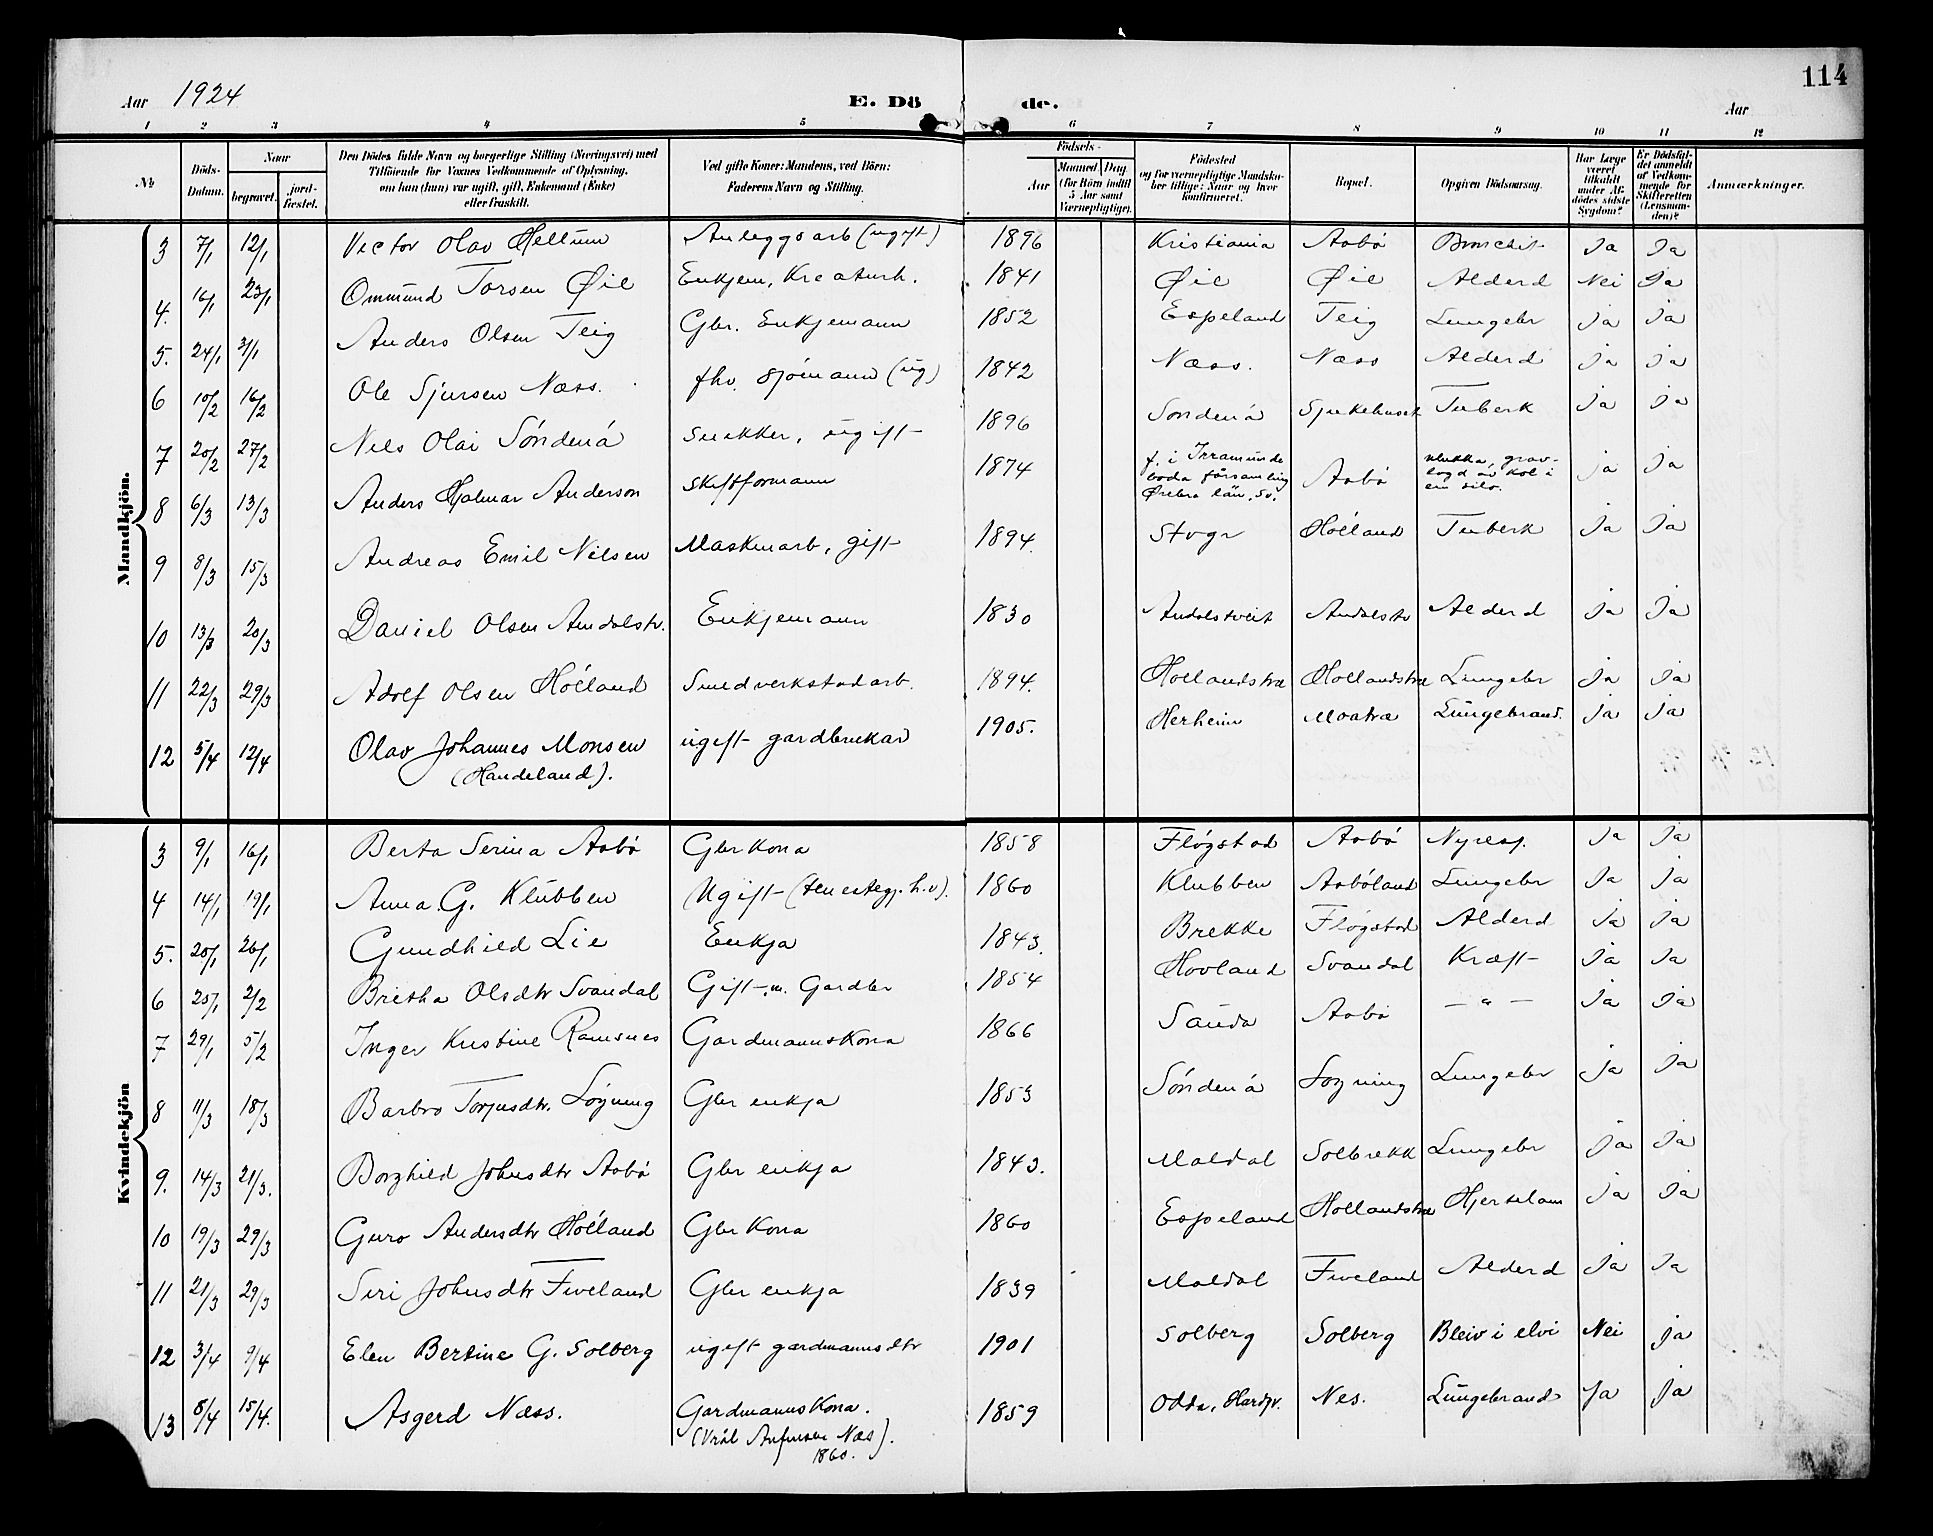 114
Aar 1924 E. Dö de. Aar
1 2 3 4 5 6 7 8 9 10 11 12
№ Döds-Datum. Naar begravet. jord-fæstet. Den Dödes fulde Navn og borgerlige Stilling (Næringsvei) med Tilföiende for Voxnes Vedkommende af Oplysning, om han (hun) var ugift, gift, Enkemand (Enke) eller fraskilt. Ved gifte Koner: Mandens, ved Börn: Faderens Navn og Stilling. Födsels- Aar Maaned Dag (for Börn indtil 5 Aar samt Værnepligtige). Födested og for værnepligtige Mandskaber tillige: Naar og hvor konfirmeret. Bopæl. Opgiven Dödsaarsag. Har Læge været tilkaldt under Afdödes sidste Sygdom? Er Dödsfaldet anmeldt af Vedkommende for Skifteretten (Lensmanden)? Anmærkninger.
Mandkjön.
3 7/1 12/1 Victor Olav Hellum Anleggsarb (ugift) 1896 Kristiania Aabö Bronchit Ja Ja
4. 16/1 23/1 Ommund Torsen Øie Enkjem, Kreaturh. 1841 Øie Øie Alderd Nei Ja
5. 24/1 31/1 Anders Olsen Teig Gbr. Enkjemann 1852 Espeland Teig Lungebr Ja Ja
6 10/2 16/2 Ole Sjursen Næss. fhv. Sjömann (ug) 1842 Næss. Næss Alderd Ja Ja
7 20/2 27/2 Nils Olai Söndenå Snekker, ugift 1896 Sondenå Sjukehuset Tuberk Ja Ja
8 6/3 13/3 Anders Hjalmar Anderson skiftformann 1874 f. i Irramunde boda församling Örebro län, Sv. Aabö ulukka, grav-lagd av kol i ein silo. Ja Ja
9 8/3 15/3 Andreas Emil Nilsen Maskinarb, gift 1894. Stogr Hölland Tuberk Ja Ja
10 13/3 20/3 Daniel Olsen Amdalstv. Enkjemann 1830 Amdalstveit Amdalstv Alderd Ja Ja
11 22/3 29/3 Adolf Olsen Hölland Smedverkstadarb. 1894. Hollandstræ Hollandstræ Lungebr Ja Ja
12 5/4 12/4 Olav Johannes Monsen ugift gardbrukar 1905. Herheim Moatræ Lungebrand. Ja Ja
(Handeland).
Kvindekjön
3 9/1 16/1 Berta Serina Aabö Gbr Kona 1858 Flögstad Aabö Nyresj. Ja Ja
4 14/1 19/1 Anna. G. Klubben Ugift (tenestegj. h.v). 1860 Klubben Aaböland Lungebr Ja Ja
5. 20/1 26/1 Gundhild Lie Enkja 1843. Brekke Flögstad Alderd Ja Ja
6 25/1 2/2 Bretha Olsdtr Svandal Gift m. Gardbr 1854 Hovland Svandal Kræft Ja Ja
7 29/1 5/2 Inger Kristine Ramsnes Gardmannskona 1866 Sauda Aabö — " — Ja Ja
8 11/3 18/3 Barbro Torjusdtr. Lögning Gbr enkja 1853 Söndenå Logning Lungebr Ja Ja
9. 14/3 21/3. Borghild Johnsdtr Aabö Gbr enkja 1843. Maldal Solbrekk Lungebr Ja Ja
10 19/3 29/3 Guro Andersdtr Hölland Gbr Kona 1860 Espeland Hollandstræ Hjertelam Ja Ja
11 21/3 29/3 Siri Johnsdtr Fiveland Gbr enkja 1839 Maldal Fiveland Alderd Ja Ja
12 3/4 9/4 Elen Bertine G. Solberg ugift gardmannsdtr 1901 Solberg Solberg Bleiv i elvi Nei Ja
13 8/4 15/4. Asgerd Næss. Gardmannskona. 1859 Odda, Hardgr. Nes. Lungebrand Ja Ja
(Vrål Anfinsen Næs).
1860.